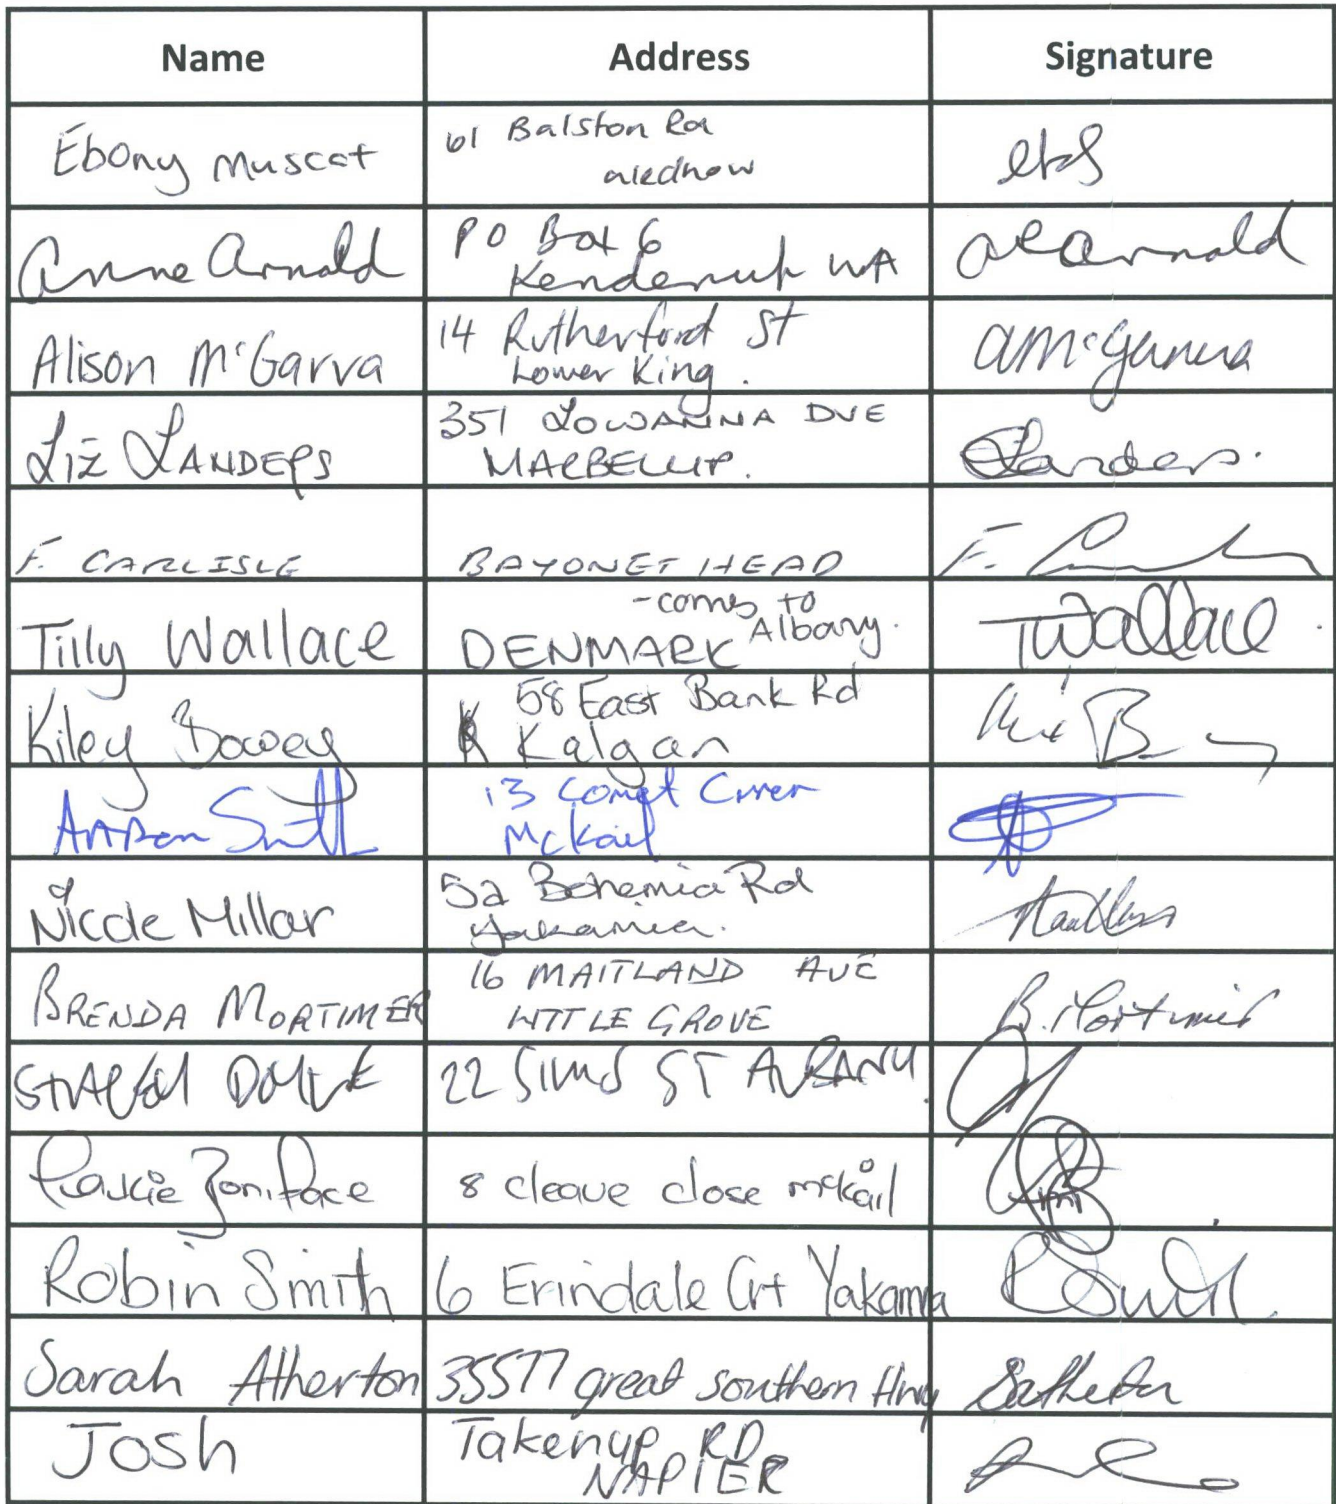 Name Address Signature
Ebony Muscat 61 Balston Rd
etS
Anne Arnold PO Box 6
Kendenup WA
Arnold
Alison McGarva 14 Rutherford St
Lower King.
AMcGarva
Liz LANDERS 351 LOWANNA DVE
MARBELLUP.
Landers.
F. CARLISLE BAYONET HEAD F.
Tilly Wallace DENMARK - comes to
Albany.
TWallace
Kiley Bowey 58 East Bank Rd
Kalgan
B
Smith 13 Comet
McKail
Nicole Millar 52 Bohemia Rd
Yakamia.
BRENDA MORTIMER 16 MAITLAND AVE
LITTLE GROVE
B. Mortimer
22 SIMS ST ALBANY
Boniface 8 cleave close mckail
Robin Smith 6 Erindale Crt Yakamia RSmith
Sarah Atherton 35577 great southern Hwy SAtherton
Josh Takenup RD
NAPIER